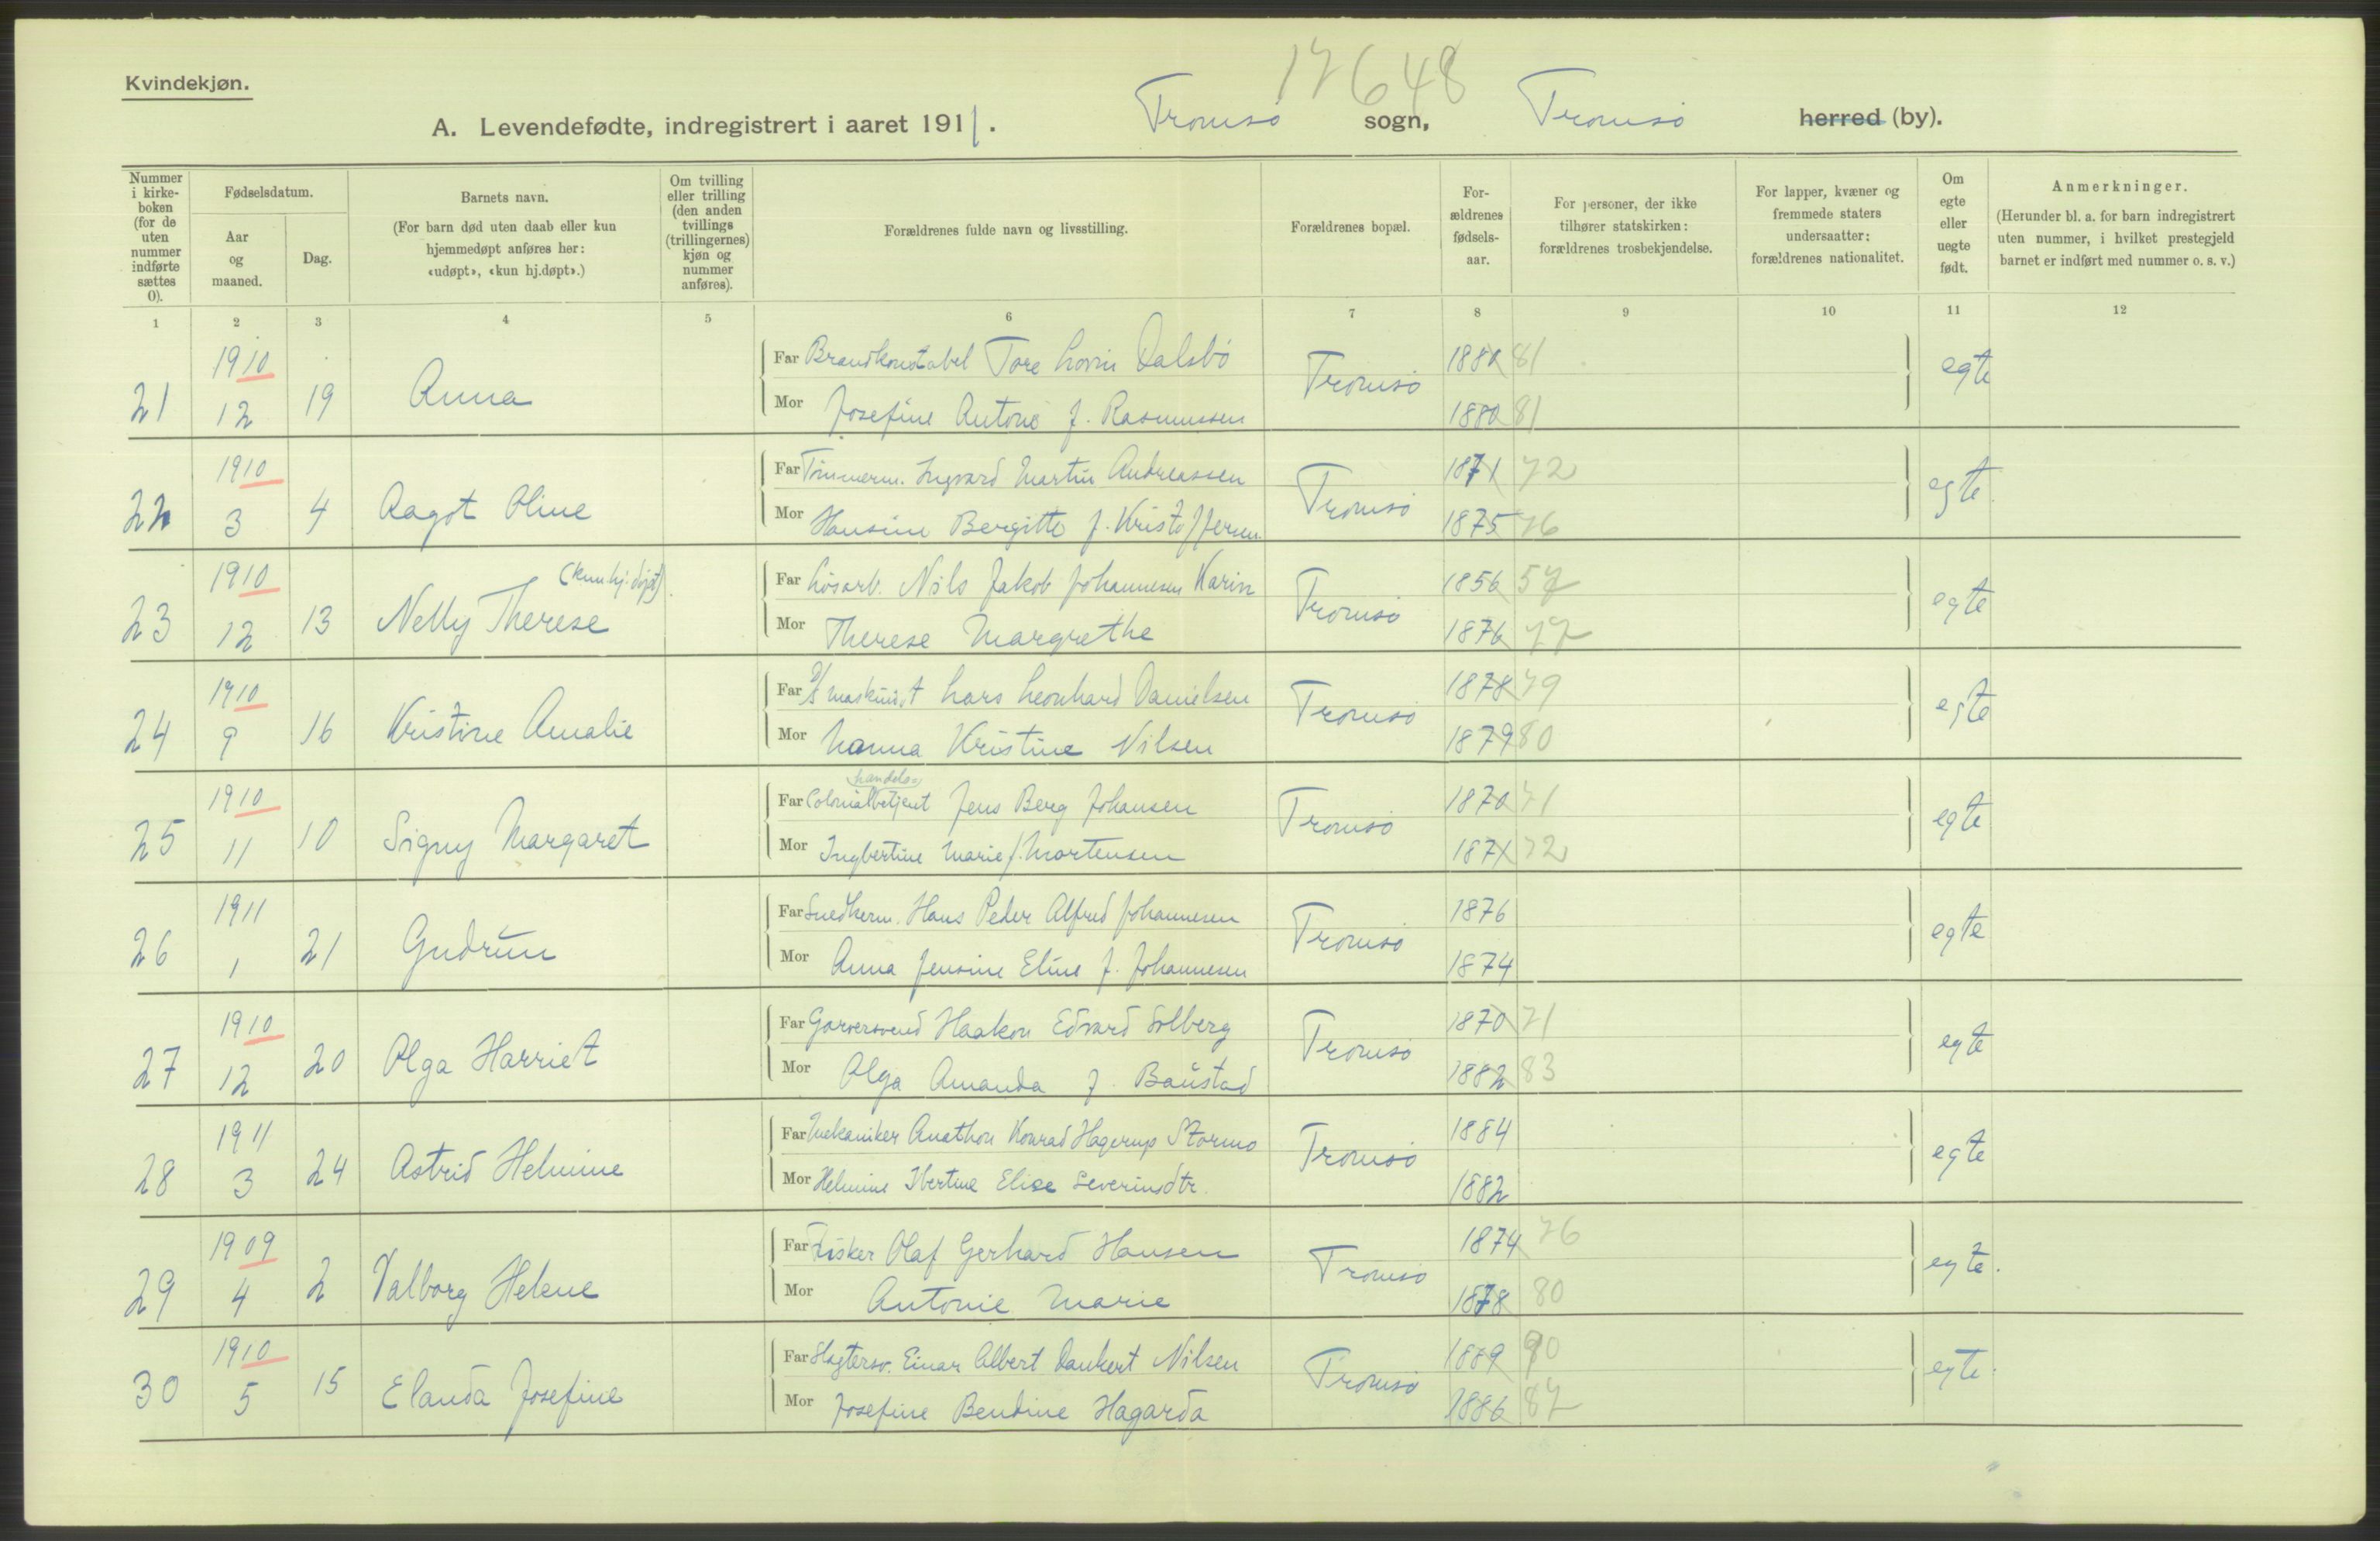 17648
Kvindekjøn.
A. Levendefødte, indregistrert i aaret 1911. Tromsø sogn, Tromsø herred (by).
Nummer i kirke-boken (for de uten nummer indførte sættes 0).
Fødselsdatum.
Aar og maaned.
Dag.
Barnets navn.
(For barn død uten daab eller kun hjemmedøpt anføres her: «udøpt», «kun hj.døpt».)
Om tvilling eller trilling (den anden tvillings (trillingernes) kjøn og nummer anføres).
Forældrenes fulde navn og livsstilling.
Forældrenes bopæl.
For-ældrenes fødsels-aar.
For personer, der ikke tilhører statskirken: forældrenes trosbekjendelse.
For lapper, kvæner og fremmede staters undersaatter: forældrenes nationalitet.
Om egte eller uegte født.
Anmerkninger.
(Herunder bl. a. for barn indregistrert uten nummer, i hvilket prestegjeld barnet er indført med nummer o. s. v.)
1 2 3 4 5 6 7 8 9 10 11 12
1910 Far Brandkonstabel Tore Lorin Dalsbø 1880 81
21 12 19 Anna Tromsø egte
Mor Josefine Antonie f. Rasmussen 1880 81
1910 Far Tømmerm. Ingvard Martin Andreassen 1871 72
22 3 4 Ragot Oline Tromsø egte
Mor Hansine Bergitte f. Kristoffersen 1875 76
1910 (kun hj. døpt) Far Løsarb. Nils Jakob Johannesen Karin 1856 57
23 12 13 Nelly Therese Tromsø egte
Mor Therese Margrethe 1876 77
1910 Far D/S maskinist Lars Leonhard Danielsen 1878 79
24 9 16 Kristine Amalie Tromsø egte
Mor Hanna Kristine Nilsen 1879 80
handels=
1910 Far Colonialbetjent Jens Berg Johansen 1870 71
25 11 10 Signy Margaret Tromsø egte
Mor Ingbertine Marie f. Mortensen 1871 72
1911 Far Snedkerm. Hans Peder Alfred Johannesen 1876
26 1 21 Gudrun Tromsø egte
Mor Anna Jensine Eline f. Johannesen 1874
1910 Far Garversvend Haakon Edvard Solberg 1870 71
27 12 20 Olga Harriet Tromsø egte
Mor Olga Amanda f. Baustad 1882 83
1911 Far Mekaniker Anathon Konrad Hagerup Stormo 1884
28 3 24 Astrid Helmine Tromsø egte
Mor Helmine Ibertine Elise Severinsdtr. 1882
1909 Far Fisker Olaf Gerhard Hansen 1874 76
29 4 2 Valborg Helene Tromsø egte.
Mor Antonie Marie 1878 80
1910 Far Slagtersv. Einar Albert Dankert Nilsen 1889 90
30 5 15 Elanda Josefine Tromsø egte.
Mor Josefine Bendine Hagarda 1886 87